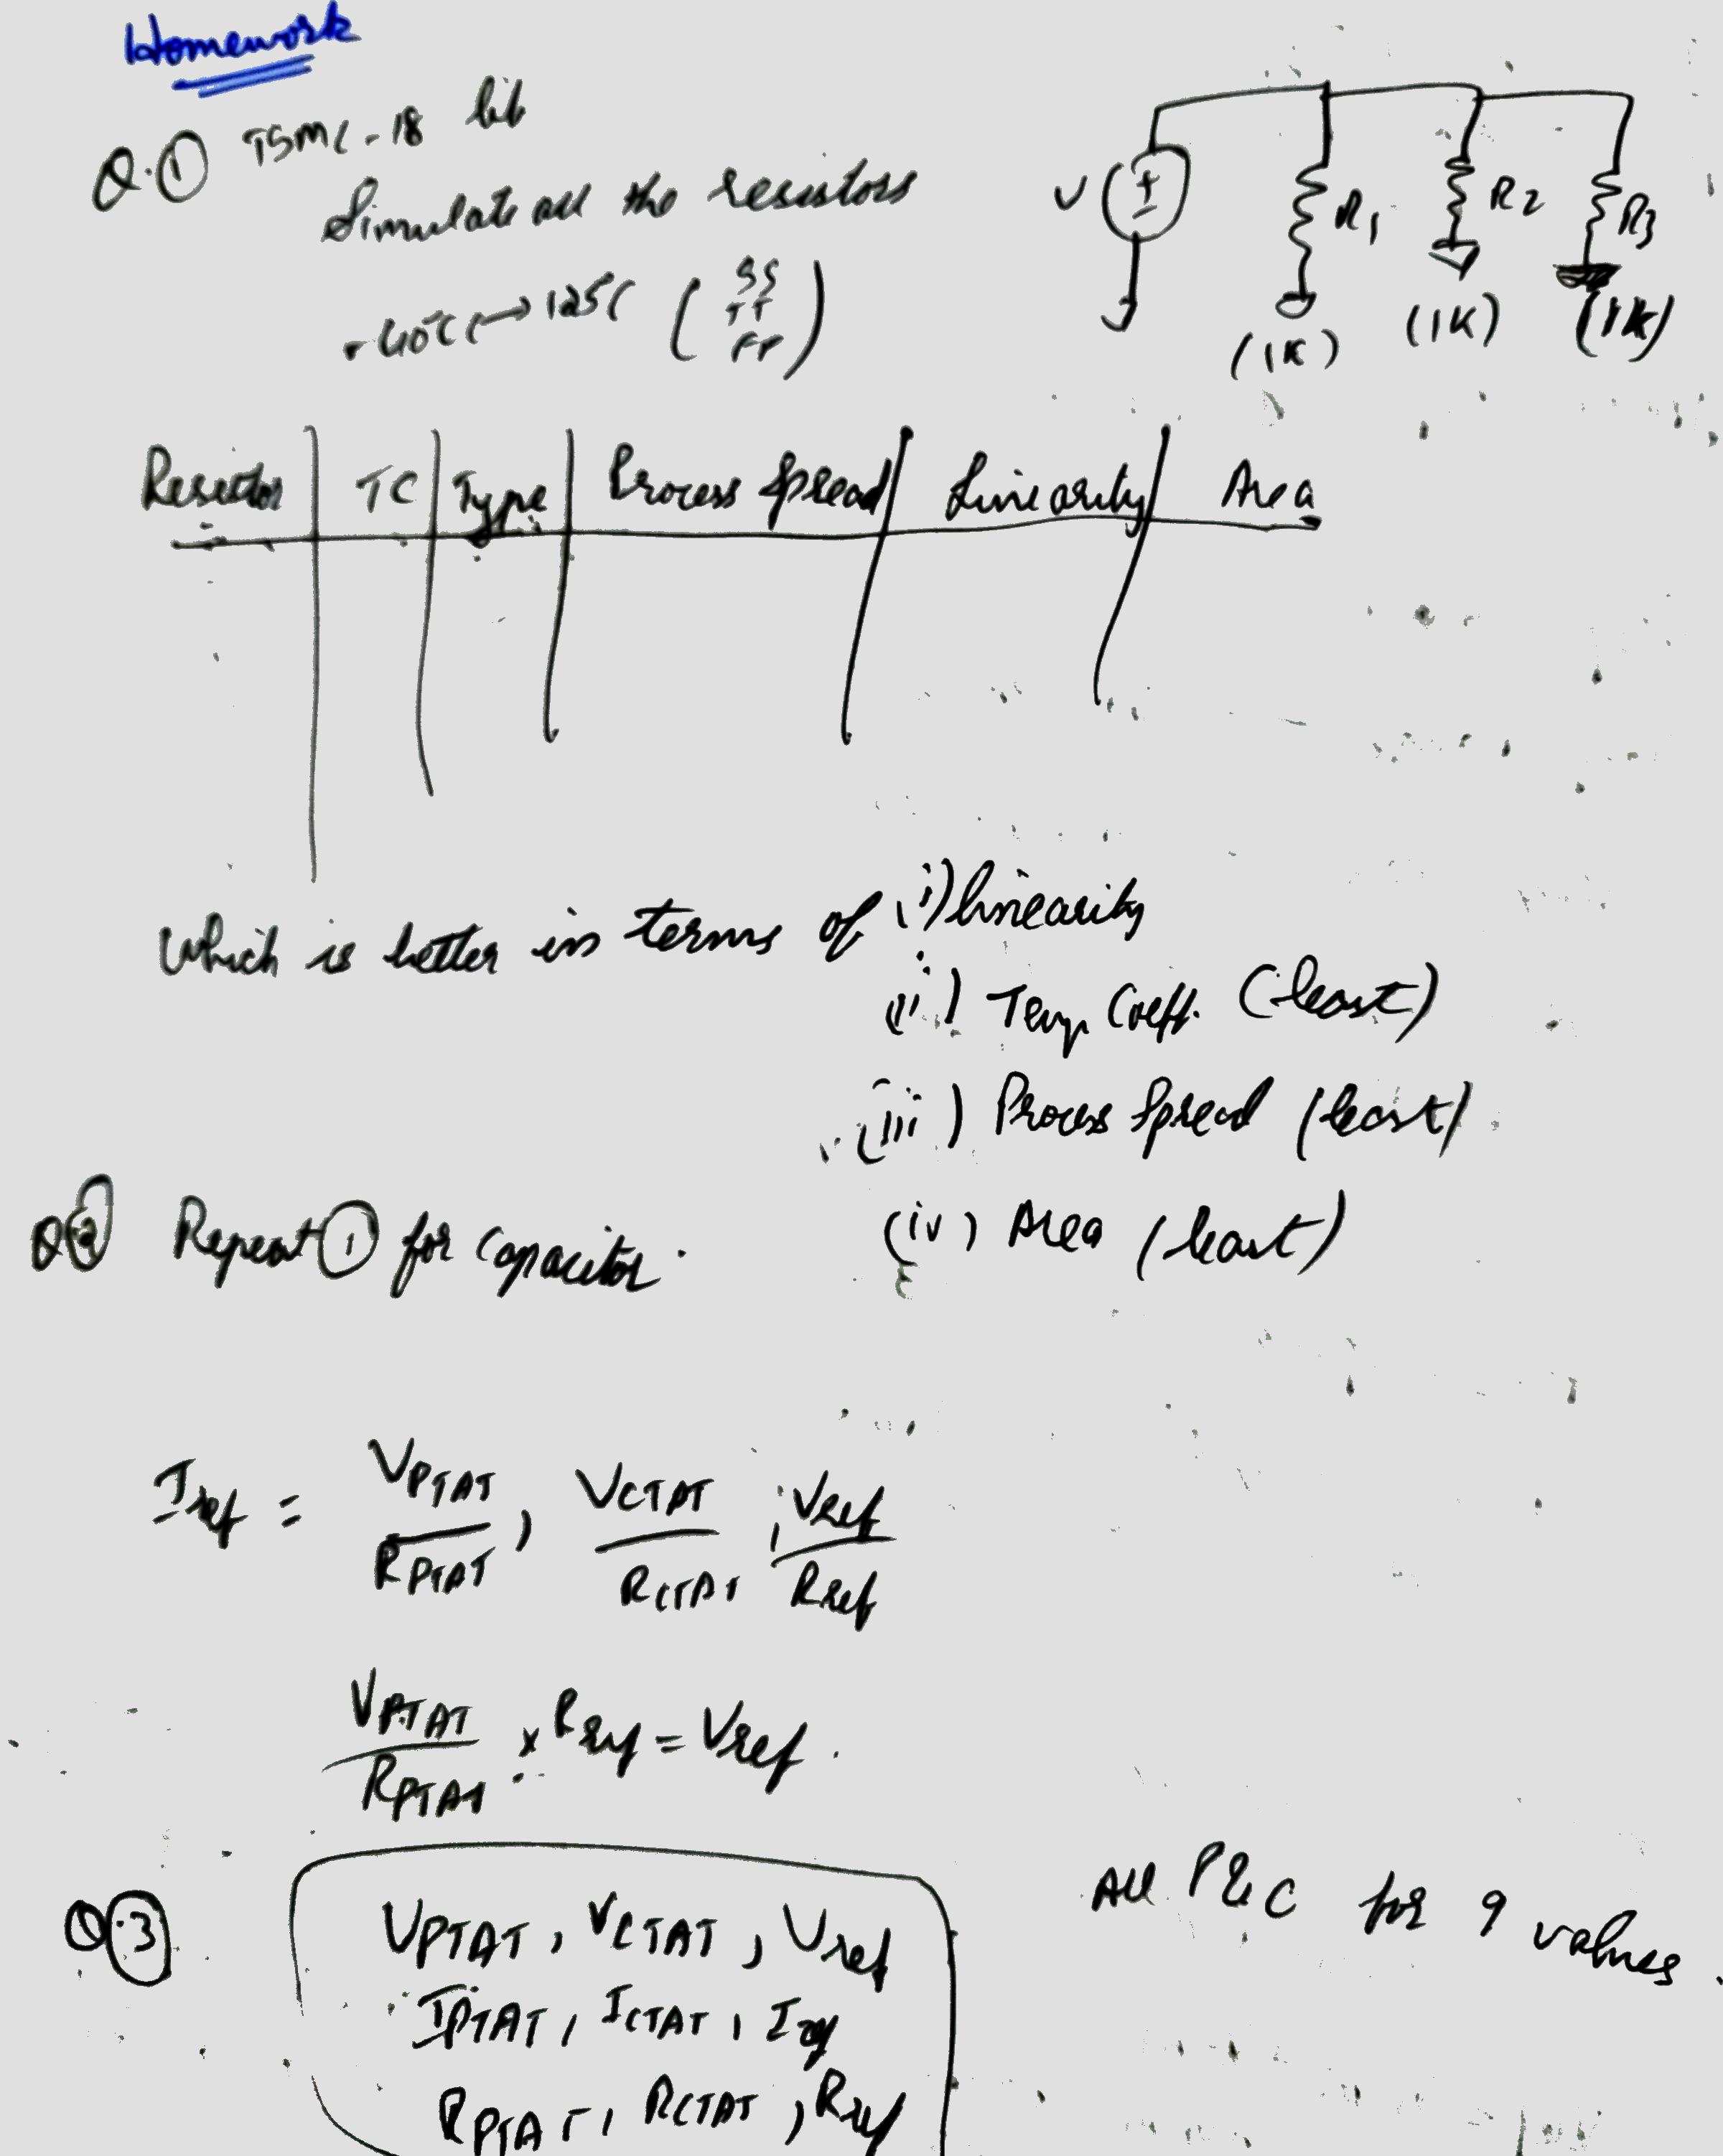 Homework
Q.① TSMC-18 lib
Simulate all the resistors
-40°C → 125C ( SS TT FF )
V + - R1 R2 R3
(1K) (1K) (1K)
Resistor | TC | Type | Process Spread | Linearity | Area
Which is better in terms of (i) linearity
(ii) Temp Coeff. (least)
(iii) Process Spread (least)
(iv) Area (least)
Q② Repeat ① for Capacitor.
Iref = VPTAT/RPTAT, VCTAT/RCTAT, Vref/Rref
VPTAT/RPTAT × Rref = Vref.
Q.③ VPTAT, VCTAT, Vref All P&C for 9 values.
IPTAT, ICTAT, Iref
RPTAT, RCTAT, Rref